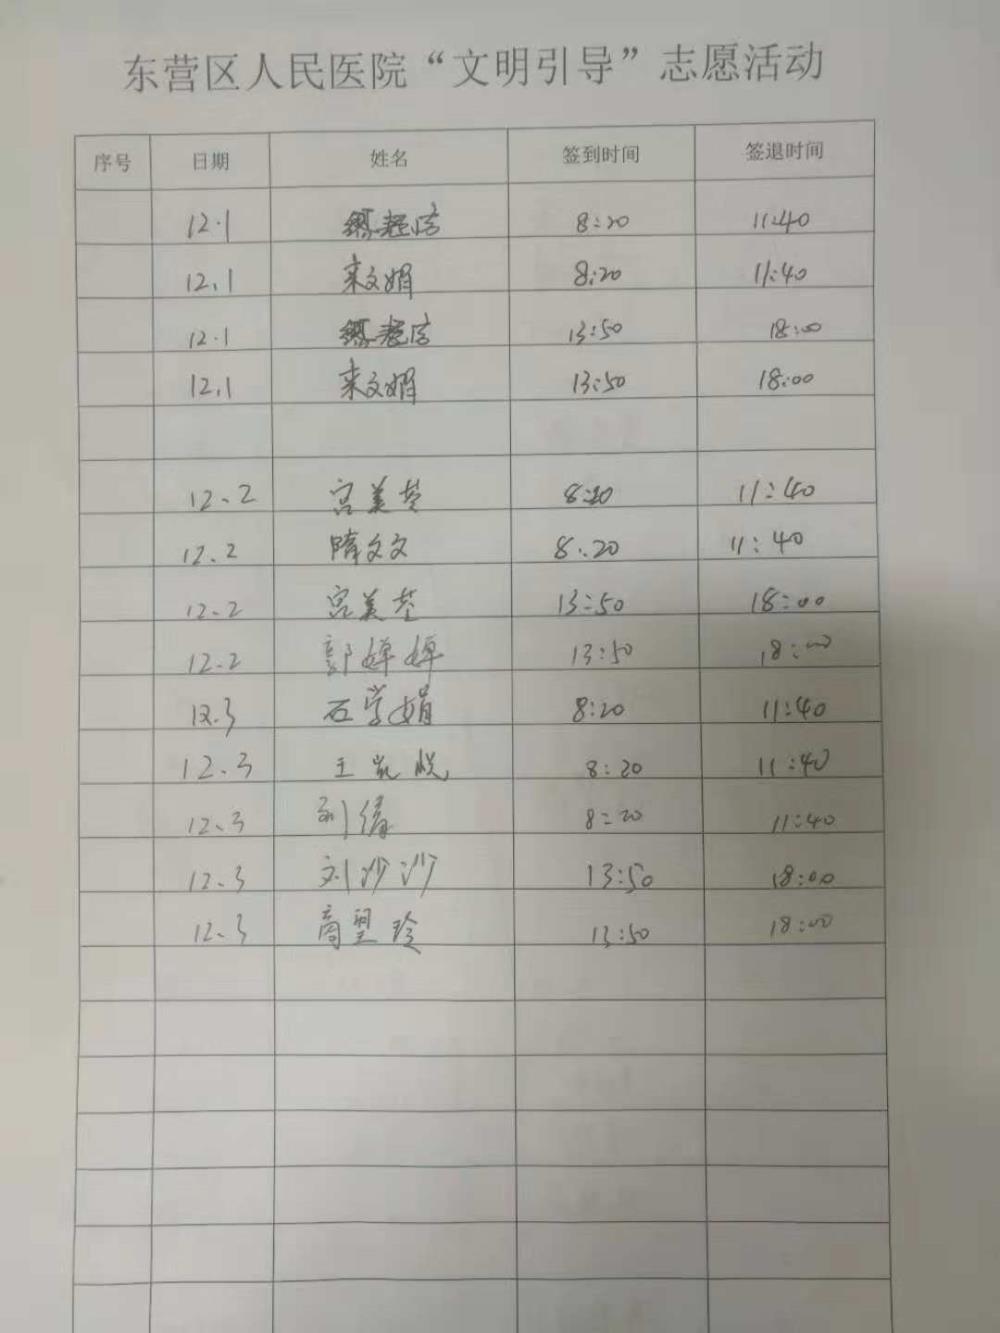 东营区人民医院“文明引导”志愿活动
序号 日期 姓名 签到时间 签退时间
12.1 8:20 11:40
12.1 来文娟 8:20 11:40
12.1 13:50 18:00
12.1 来文娟 13:50 18:00
12.2 宫美芝 8:20 11:40
12.2 隋文文 8:20 11:40
12.2 宫美芝 13:50 18:00
12.2 郭婵婵 13:50 18:00
12.3 石学娟 8:20 11:40
12.3 王岚悦 8:20 11:40
12.3 刘倩 8:20 11:40
12.3 刘沙沙 13:50 18:00
12.3 商翌玲 13:50 18:00